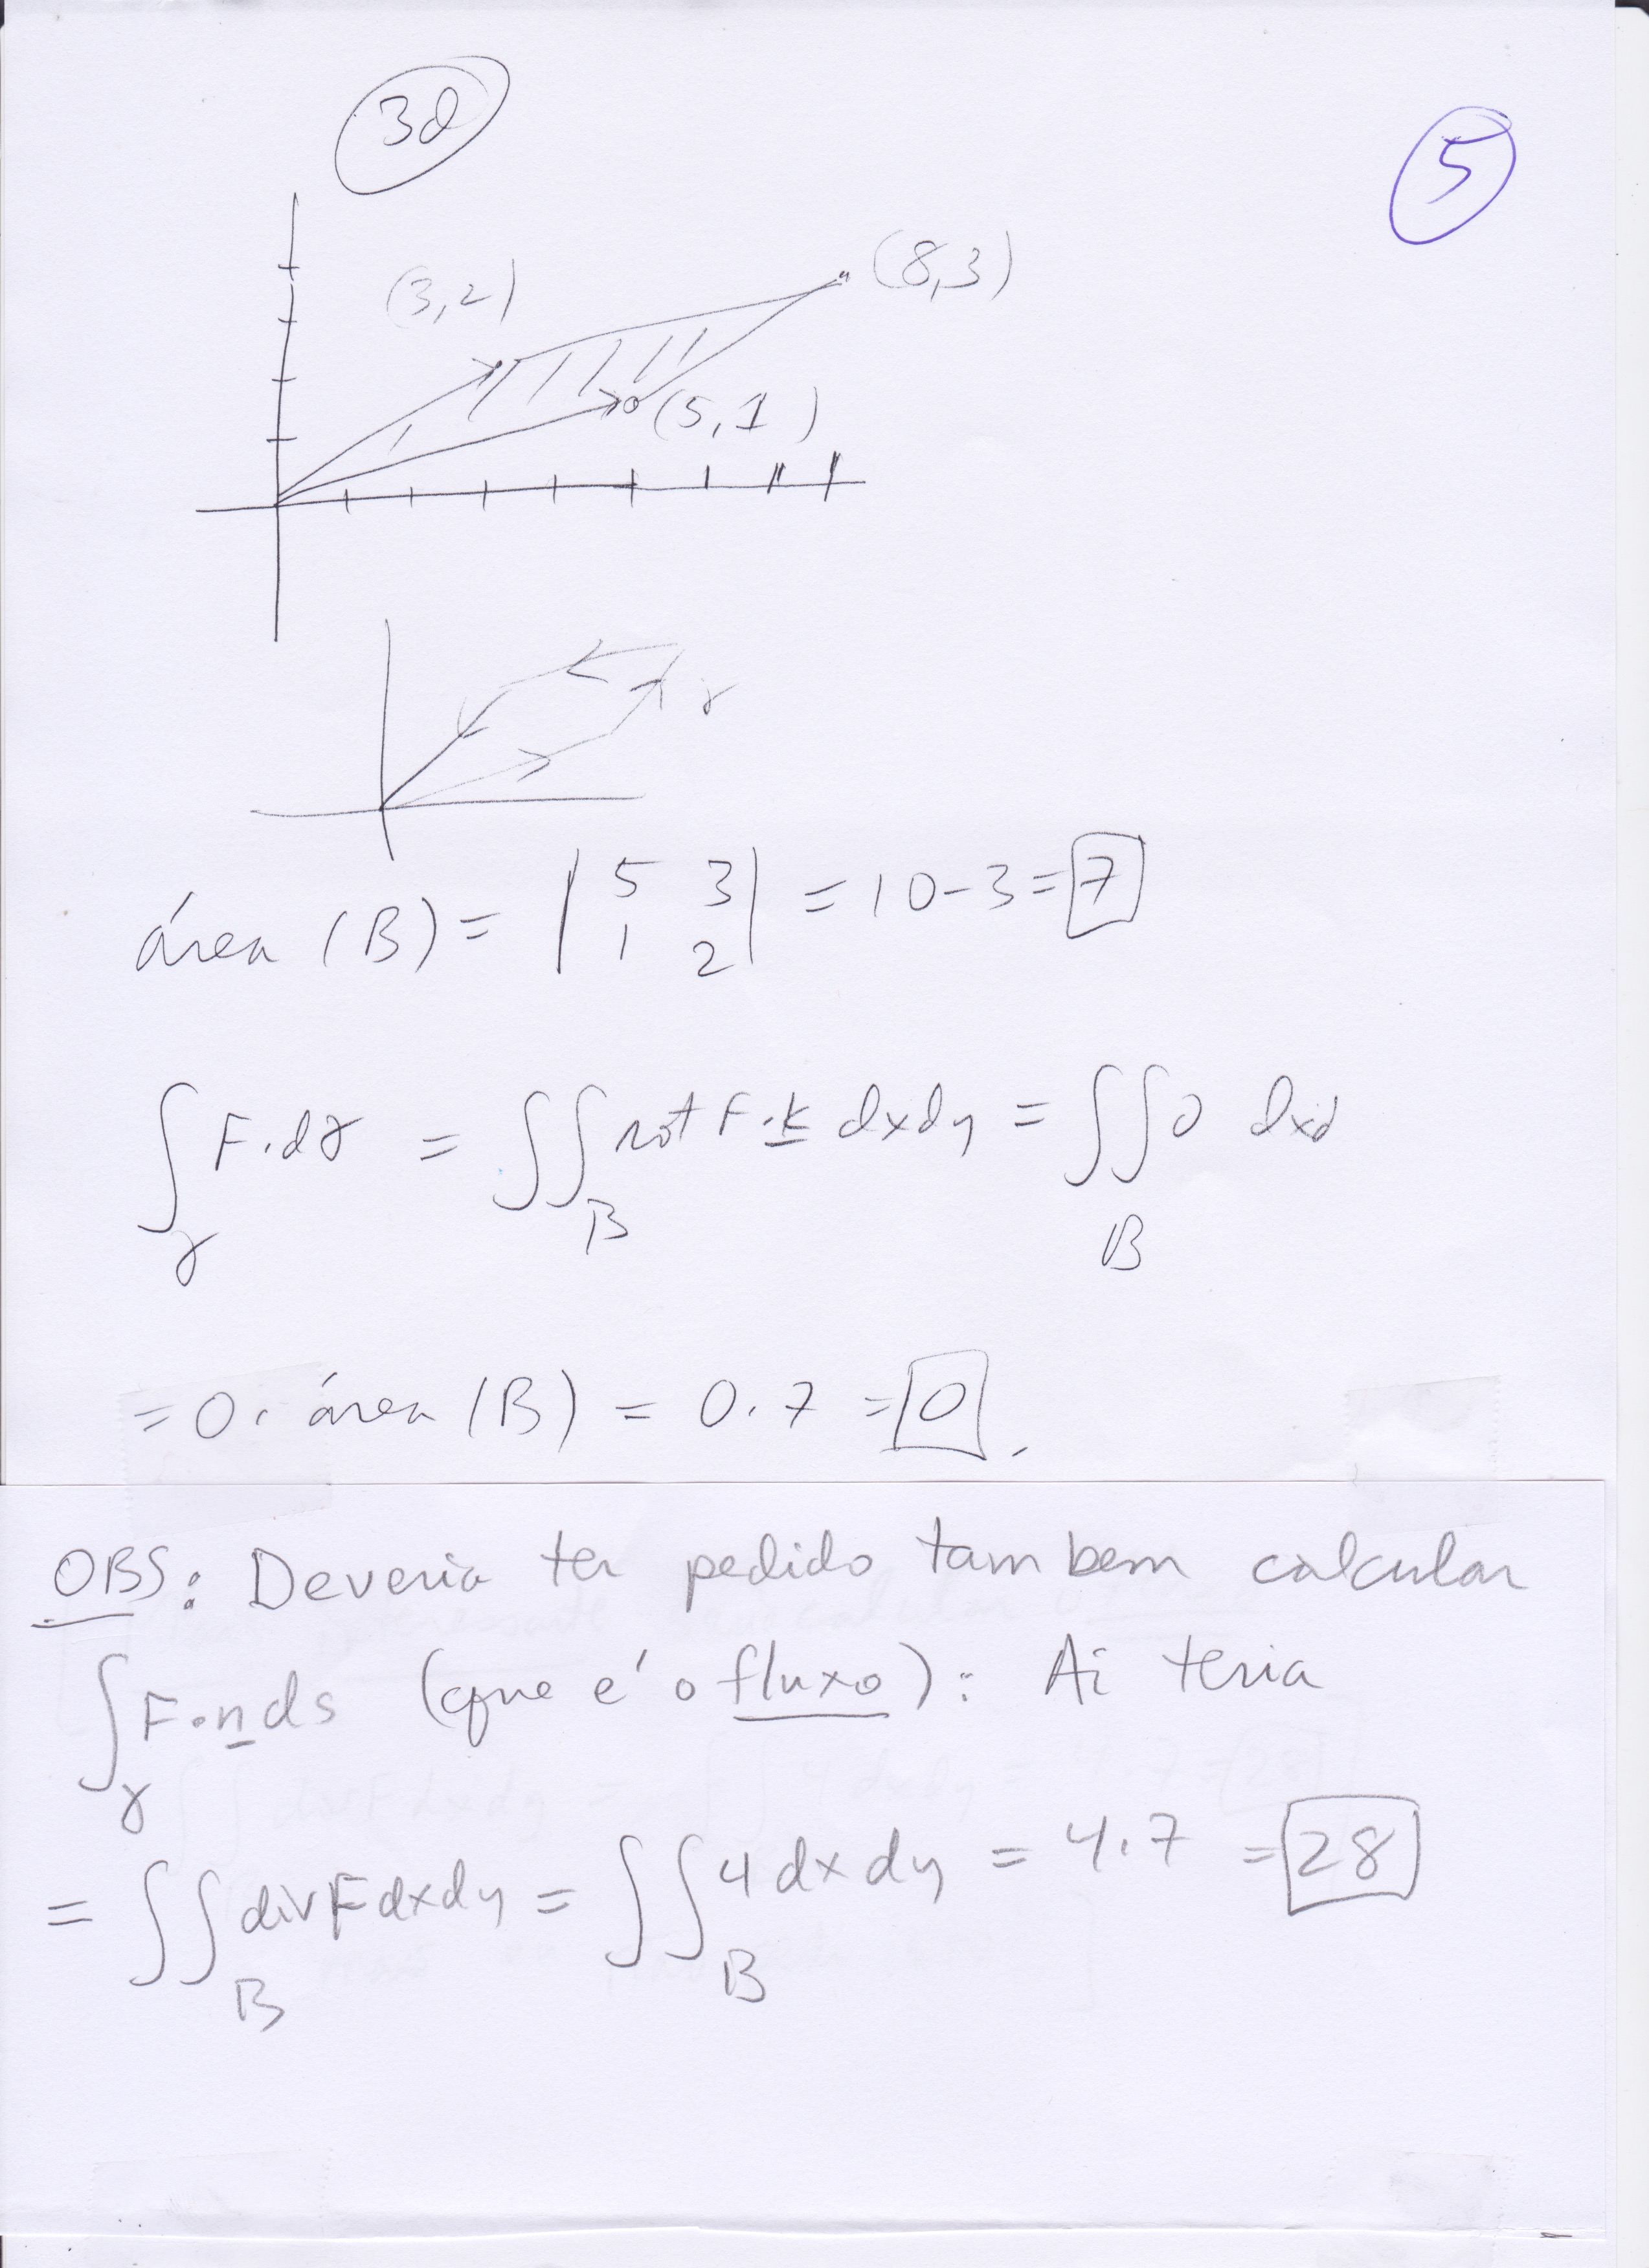 3d
5
(3,2)
(8,3)
(5,1)
γ
área (B) = | 5 3 | = 10 - 3 = 7
| 1 2 |
∫γ F·dγ = ∬B rot F·k dxdy = ∬B 0 dxd
= 0· área (B) = 0.7 = 0.
OBS: Deveria ter pedido tambem calcular
∫γ F·n ds (que é o fluxo): Ai teria
= ∬B div F dxdy = ∬B 4 dxdy = 4.7 = 28